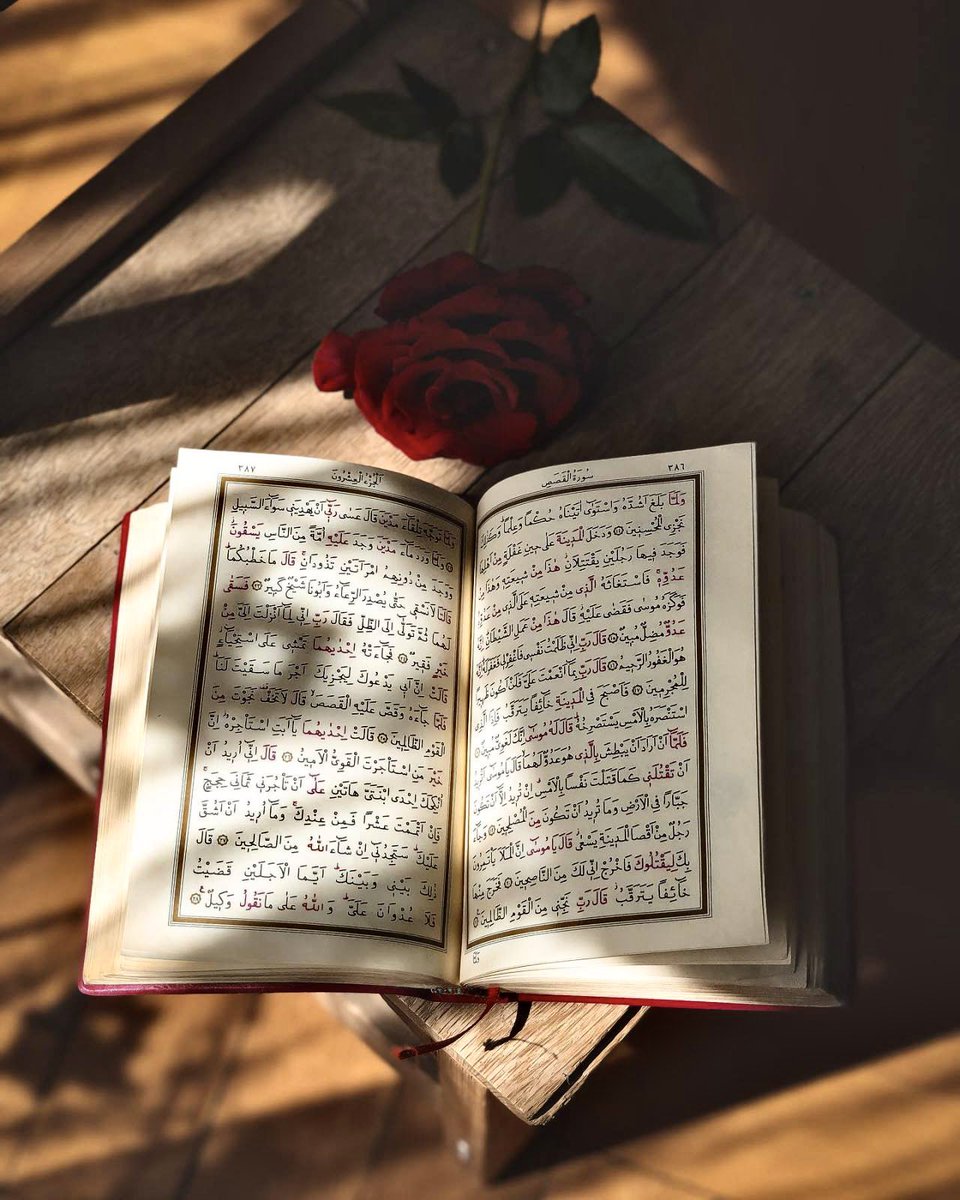 ٣٨٦
سُورَةُ الْقَصَصِ
وَلَمَّا بَلَغَ اَشُدَّهُ وَاسْتَوٰٓى اٰتَيْنَاهُ حُكْمًا وَعِلْمًاۜ وَكَذٰلِكَ
نَجْزِي الْمُحْسِنِينَ ﴿١٤﴾ وَدَخَلَ الْمَدِينَةَ عَلٰى حِينِ غَفْلَةٍ مِنْ اَهْلِهَا
فَوَجَدَ فِيهَا رَجُلَيْنِ يَقْتَتِلَانِۘ هٰذَا مِنْ شِيعَتِهِ وَهٰذَا مِنْ
عَدُوِّهِۚ فَاسْتَغَاثَهُ الَّذِي مِنْ شِيعَتِهِ عَلَى الَّذِي مِنْ عَدُوِّهِۙ
فَوَكَزَهُ مُوسٰى فَقَضٰى عَلَيْهِۘ قَالَ هٰذَا مِنْ عَمَلِ الشَّيْطَانِۜ اِنَّهُ
عَدُوٌّ مُضِلٌّ مُبِينٌ ﴿١٥﴾ قَالَ رَبِّ اِنِّي ظَلَمْتُ نَفْسِي فَاغْفِرْ لِي فَغَفَرَ لَهُۜ اِنَّهُ
هُوَ الْغَفُورُ الرَّحِيمُ ﴿١٦﴾ قَالَ رَبِّ بِمَٓا اَنْعَمْتَ عَلَيَّ فَلَنْ اَكُونَ ظَهِيرًا
لِلْمُجْرِمِينَ ﴿١٧﴾ فَاَصْبَحَ فِي الْمَدِينَةِ خَٓائِفًا يَتَرَقَّبُ فَاِذَا الَّذِي
اسْتَنْصَرَهُ بِالْاَمْسِ يَسْتَصْرِخُهُۜ قَالَ لَهُ مُوسٰٓى اِنَّكَ لَغَوِيٌّ مُبِينٌ ﴿١٨﴾
فَلَمَّٓا اَنْ اَرَادَ اَنْ يَبْطِشَ بِالَّذِي هُوَ عَدُوٌّ لَهُمَا قَالَ يَا مُوسٰٓى اَتُرِيدُ
اَنْ تَقْتُلَنِي كَمَا قَتَلْتَ نَفْسًا بِالْاَمْسِۗ اِنْ تُرِيدُ اِلَّٓا اَنْ تَكُونَ
جَبَّارًا فِي الْاَرْضِ وَمَا تُرِيدُ اَنْ تَكُونَ مِنَ الْمُصْلِحِينَ ﴿١٩﴾ وَجَٓاءَ
رَجُلٌ مِنْ اَقْصَا الْمَدِينَةِ يَسْعٰىۘ قَالَ يَا مُوسٰٓى اِنَّ الْمَلَاَ يَأْتَمِرُونَ
بِكَ لِيَقْتُلُوكَ فَاخْرُجْ اِنِّي لَكَ مِنَ النَّاصِحِينَ ﴿٢٠﴾ فَخَرَجَ مِنْهَا
خَٓائِفًا يَتَرَقَّبُۘ قَالَ رَبِّ نَجِّنِي مِنَ الْقَوْمِ الظَّالِمِينَ ﴿٢١﴾
٣٨٧
اَلْجُزْءُ الْعِشْرُونَ
وَلَمَّا تَوَجَّهَ تِلْقَٓاءَ مَدْيَنَ قَالَ عَسٰى رَبِّٓي اَنْ يَهْدِيَنِي سَوَٓاءَ السَّبِيلِ
﴿٢٢﴾ وَلَمَّا وَرَدَ مَٓاءَ مَدْيَنَ وَجَدَ عَلَيْهِ اُمَّةً مِنَ النَّاسِ يَسْقُونَۘ
وَوَجَدَ مِنْ دُونِهِمُ امْرَاَتَيْنِ تَذُودَانِۚ قَالَ مَا خَطْبُكُمَاۜ
قَالَتَا لَا نَسْقِي حَتّٰى يُصْدِرَ الرِّعَٓاءُ وَاَبُونَا شَيْخٌ كَبِيرٌ ﴿٢٣﴾ فَسَقٰى
لَهُمَا ثُمَّ تَوَلّٰٓى اِلَى الظِّلِّ فَقَالَ رَبِّ اِنِّي لِمَٓا اَنْزَلْتَ اِلَيَّ مِنْ
خَيْرٍ فَقِيرٌ ﴿٢٤﴾ فَجَٓاءَتْهُ اِحْدٰيهُمَا تَمْشِي عَلَى اسْتِحْيَٓاءٍۘ
قَالَتْ اِنَّ اَبِي يَدْعُوكَ لِيَجْزِيَكَ اَجْرَ مَا سَقَيْتَ لَنَاۜ
فَلَمَّا جَٓاءَهُ وَقَصَّ عَلَيْهِ الْقَصَصَ قَالَ لَا تَخَفْ۠ نَجَوْتَ مِنَ
الْقَوْمِ الظَّالِمِينَ ﴿٢٥﴾ قَالَتْ اِحْدٰيهُمَا يَٓا اَبَتِ اسْتَأْجِرْهُۘ اِنَّ
خَيْرَ مَنِ اسْتَأْجَرْتَ الْقَوِيُّ الْاَمِينُ ﴿٢٦﴾ قَالَ اِنِّٓي اُرِيدُ اَنْ
اُنْكِحَكَ اِحْدَى ابْنَتَيَّ هَاتَيْنِ عَلٰٓى اَنْ تَأْجُرَنِي ثَمَانِيَ حِجَجٍۚ
فَاِنْ اَتْمَمْتَ عَشْرًا فَمِنْ عِنْدِكَۚ وَمَٓا اُرِيدُ اَنْ اَشُقَّ
عَلَيْكَۜ سَتَجِدُنِٓي اِنْ شَٓاءَ اللّٰهُ مِنَ الصَّالِحِينَ ﴿٢٧﴾ قَالَ
ذٰلِكَ بَيْنِي وَبَيْنَكَۜ اَيَّمَا الْاَجَلَيْنِ قَضَيْتُ
فَلَا عُدْوَانَ عَلَيَّۜ وَاللّٰهُ عَلٰى مَا نَقُولُ وَكِيلٌ۟ ﴿٢٨﴾